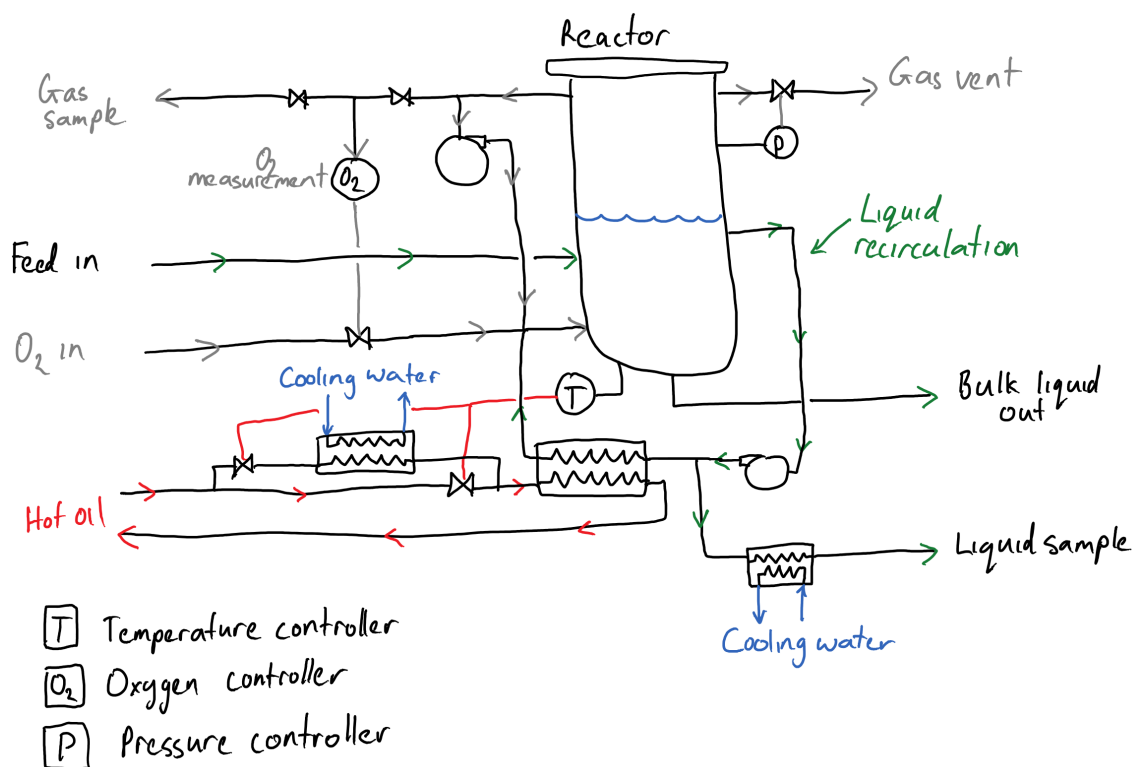 Reactor
Gas
sample
Gas vent
P
O2
measurement
O2
Liquid
recirculation
Feed in
O2 in
Cooling water
T
Bulk liquid
out
Hot oil
Liquid sample
Cooling water
T Temperature controller
O2 Oxygen controller
P Pressure controller